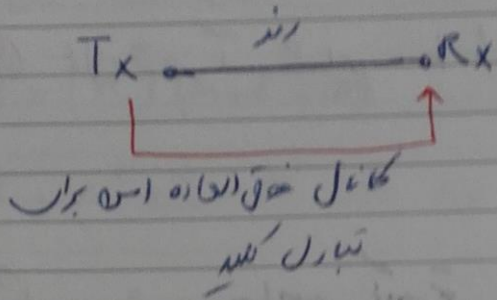 رمز
Tx Rx
کانال فوق العاده امن برای
تبادل کلید